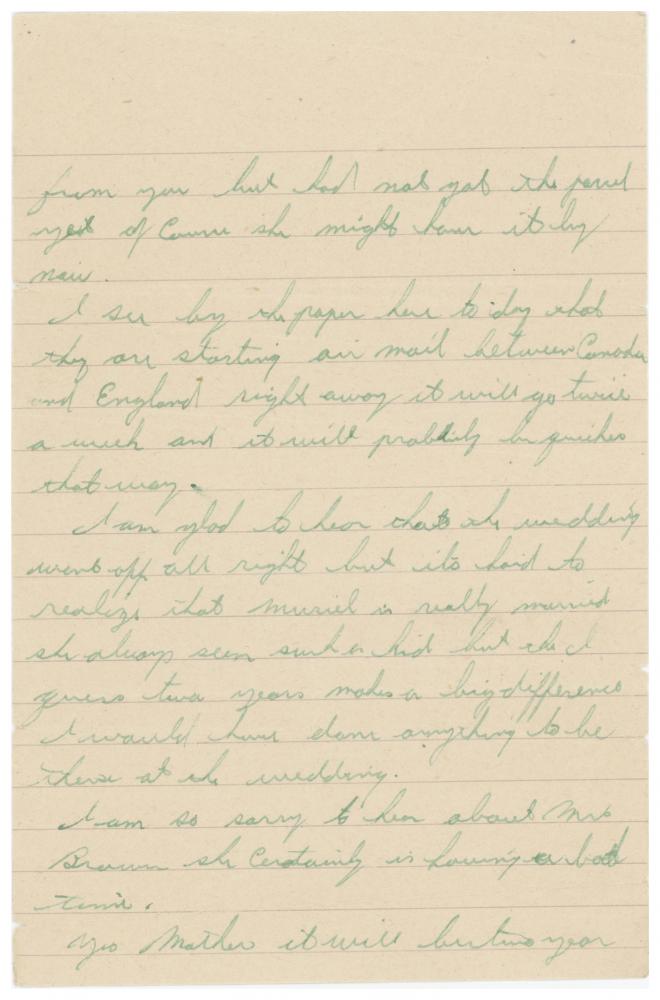 from you but had not got the parcel
yet of Course she might have it by
now.
I see by the paper here to day that
they are starting air mail between Canada
and England right away it will go twice
a week and it will probably be quicker
that way.
I am glad to hear that the wedding
went off all right but its hard to
realize that Muriel is really married
she always seem such a kid but the I
guess two years makes a big difference
I would have done anything to be
there at the wedding.
I am so sorry to hear about Mrs
Brown she Certainly is having a bad
time.
Yes Mother it will be two year